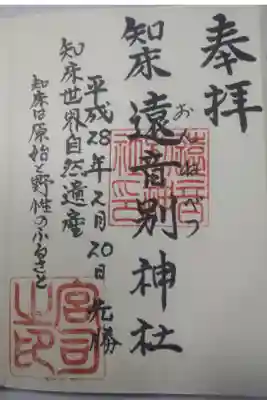 奉拝
知床 遠音別神社
おんねべつ
平成28年2月20日 先勝
知床世界自然遺産
知床は原始と野性のふるさと
宮司之印